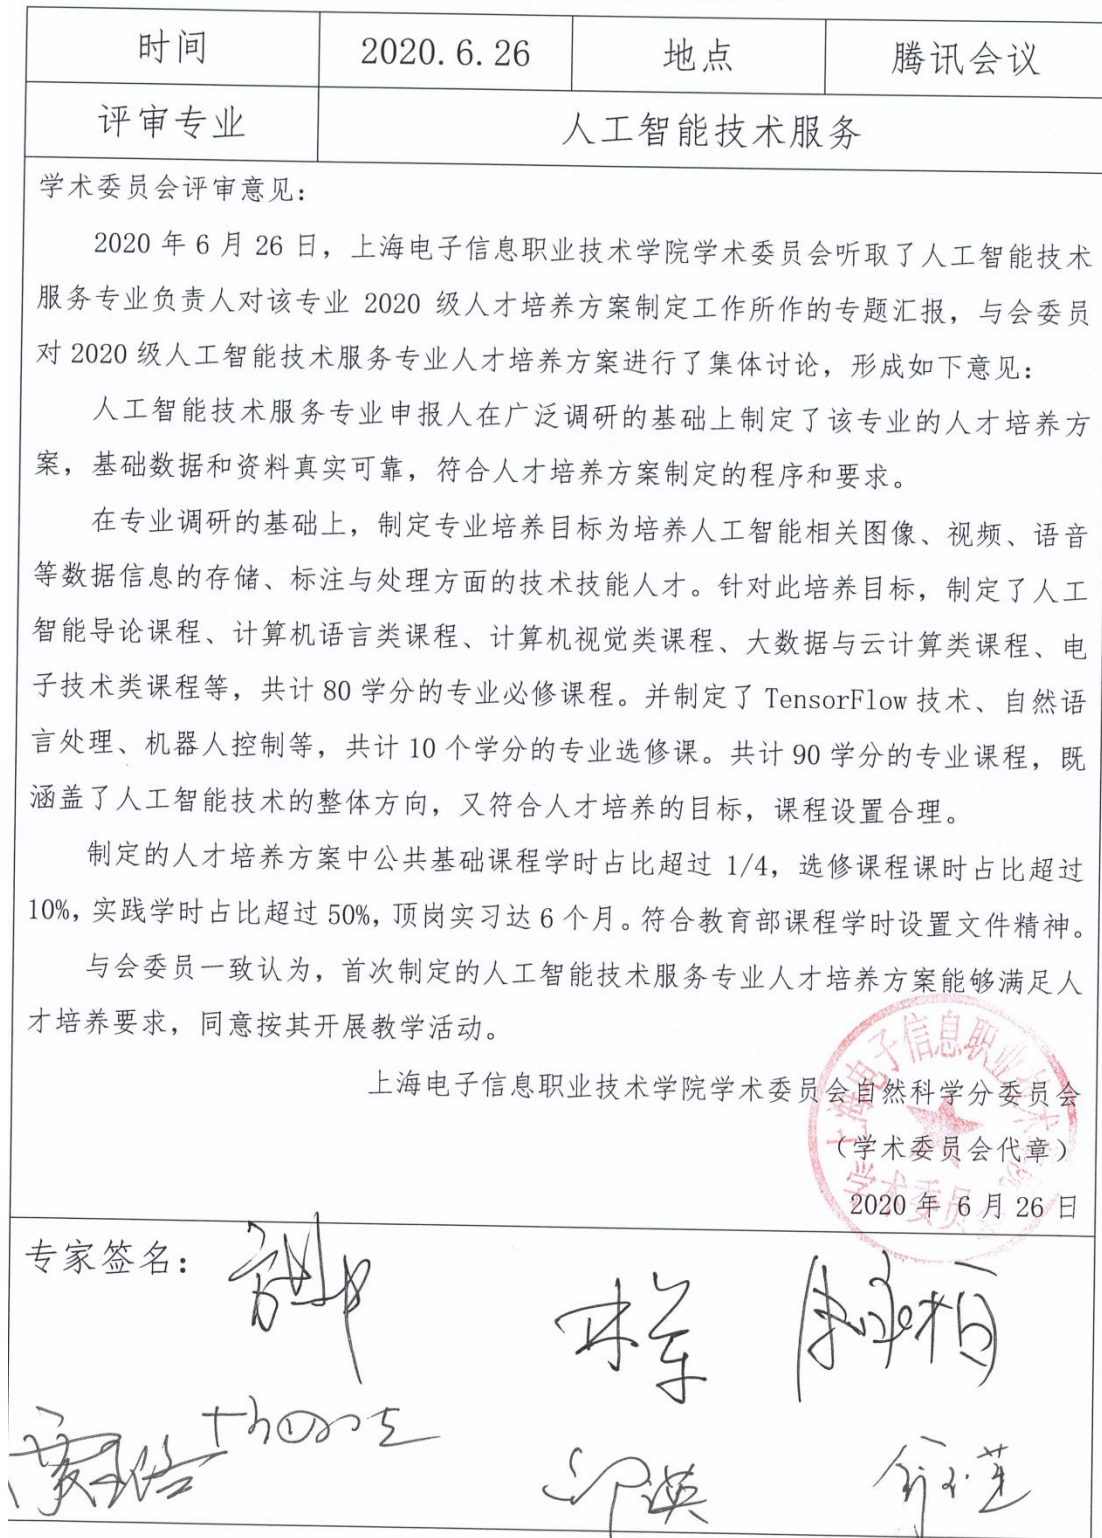 时间 2020.6.26 地点 腾讯会议
评审专业 人工智能技术服务
学术委员会评审意见：
2020 年 6 月 26 日，上海电子信息职业技术学院学术委员会听取了人工智能技术
服务专业负责人对该专业 2020 级人才培养方案制定工作所作的专题汇报，与会委员
对 2020 级人工智能技术服务专业人才培养方案进行了集体讨论，形成如下意见：
人工智能技术服务专业申报人在广泛调研的基础上制定了该专业的人才培养方
案，基础数据和资料真实可靠，符合人才培养方案制定的程序和要求。
在专业调研的基础上，制定专业培养目标为培养人工智能相关图像、视频、语音
等数据信息的存储、标注与处理方面的技术技能人才。针对此培养目标，制定了人工
智能导论课程、计算机语言类课程、计算机视觉类课程、大数据与云计算类课程、电
子技术类课程等，共计 80 学分的专业必修课程。并制定了 TensorFlow 技术、自然语
言处理、机器人控制等，共计 10 个学分的专业选修课。共计 90 学分的专业课程，既
涵盖了人工智能技术的整体方向，又符合人才培养的目标，课程设置合理。
制定的人才培养方案中公共基础课程学时占比超过 1/4，选修课程课时占比超过
10%，实践学时占比超过 50%，顶岗实习达 6 个月。符合教育部课程学时设置文件精神。
与会委员一致认为，首次制定的人工智能技术服务专业人才培养方案能够满足人
才培养要求，同意按其开展教学活动。
上海电子信息职业技术学院学术委员会自然科学分委员会
（学术委员会代章）
2020 年 6 月 26 日
上海电子信息职业技术学院
学术委员会
专家签名：